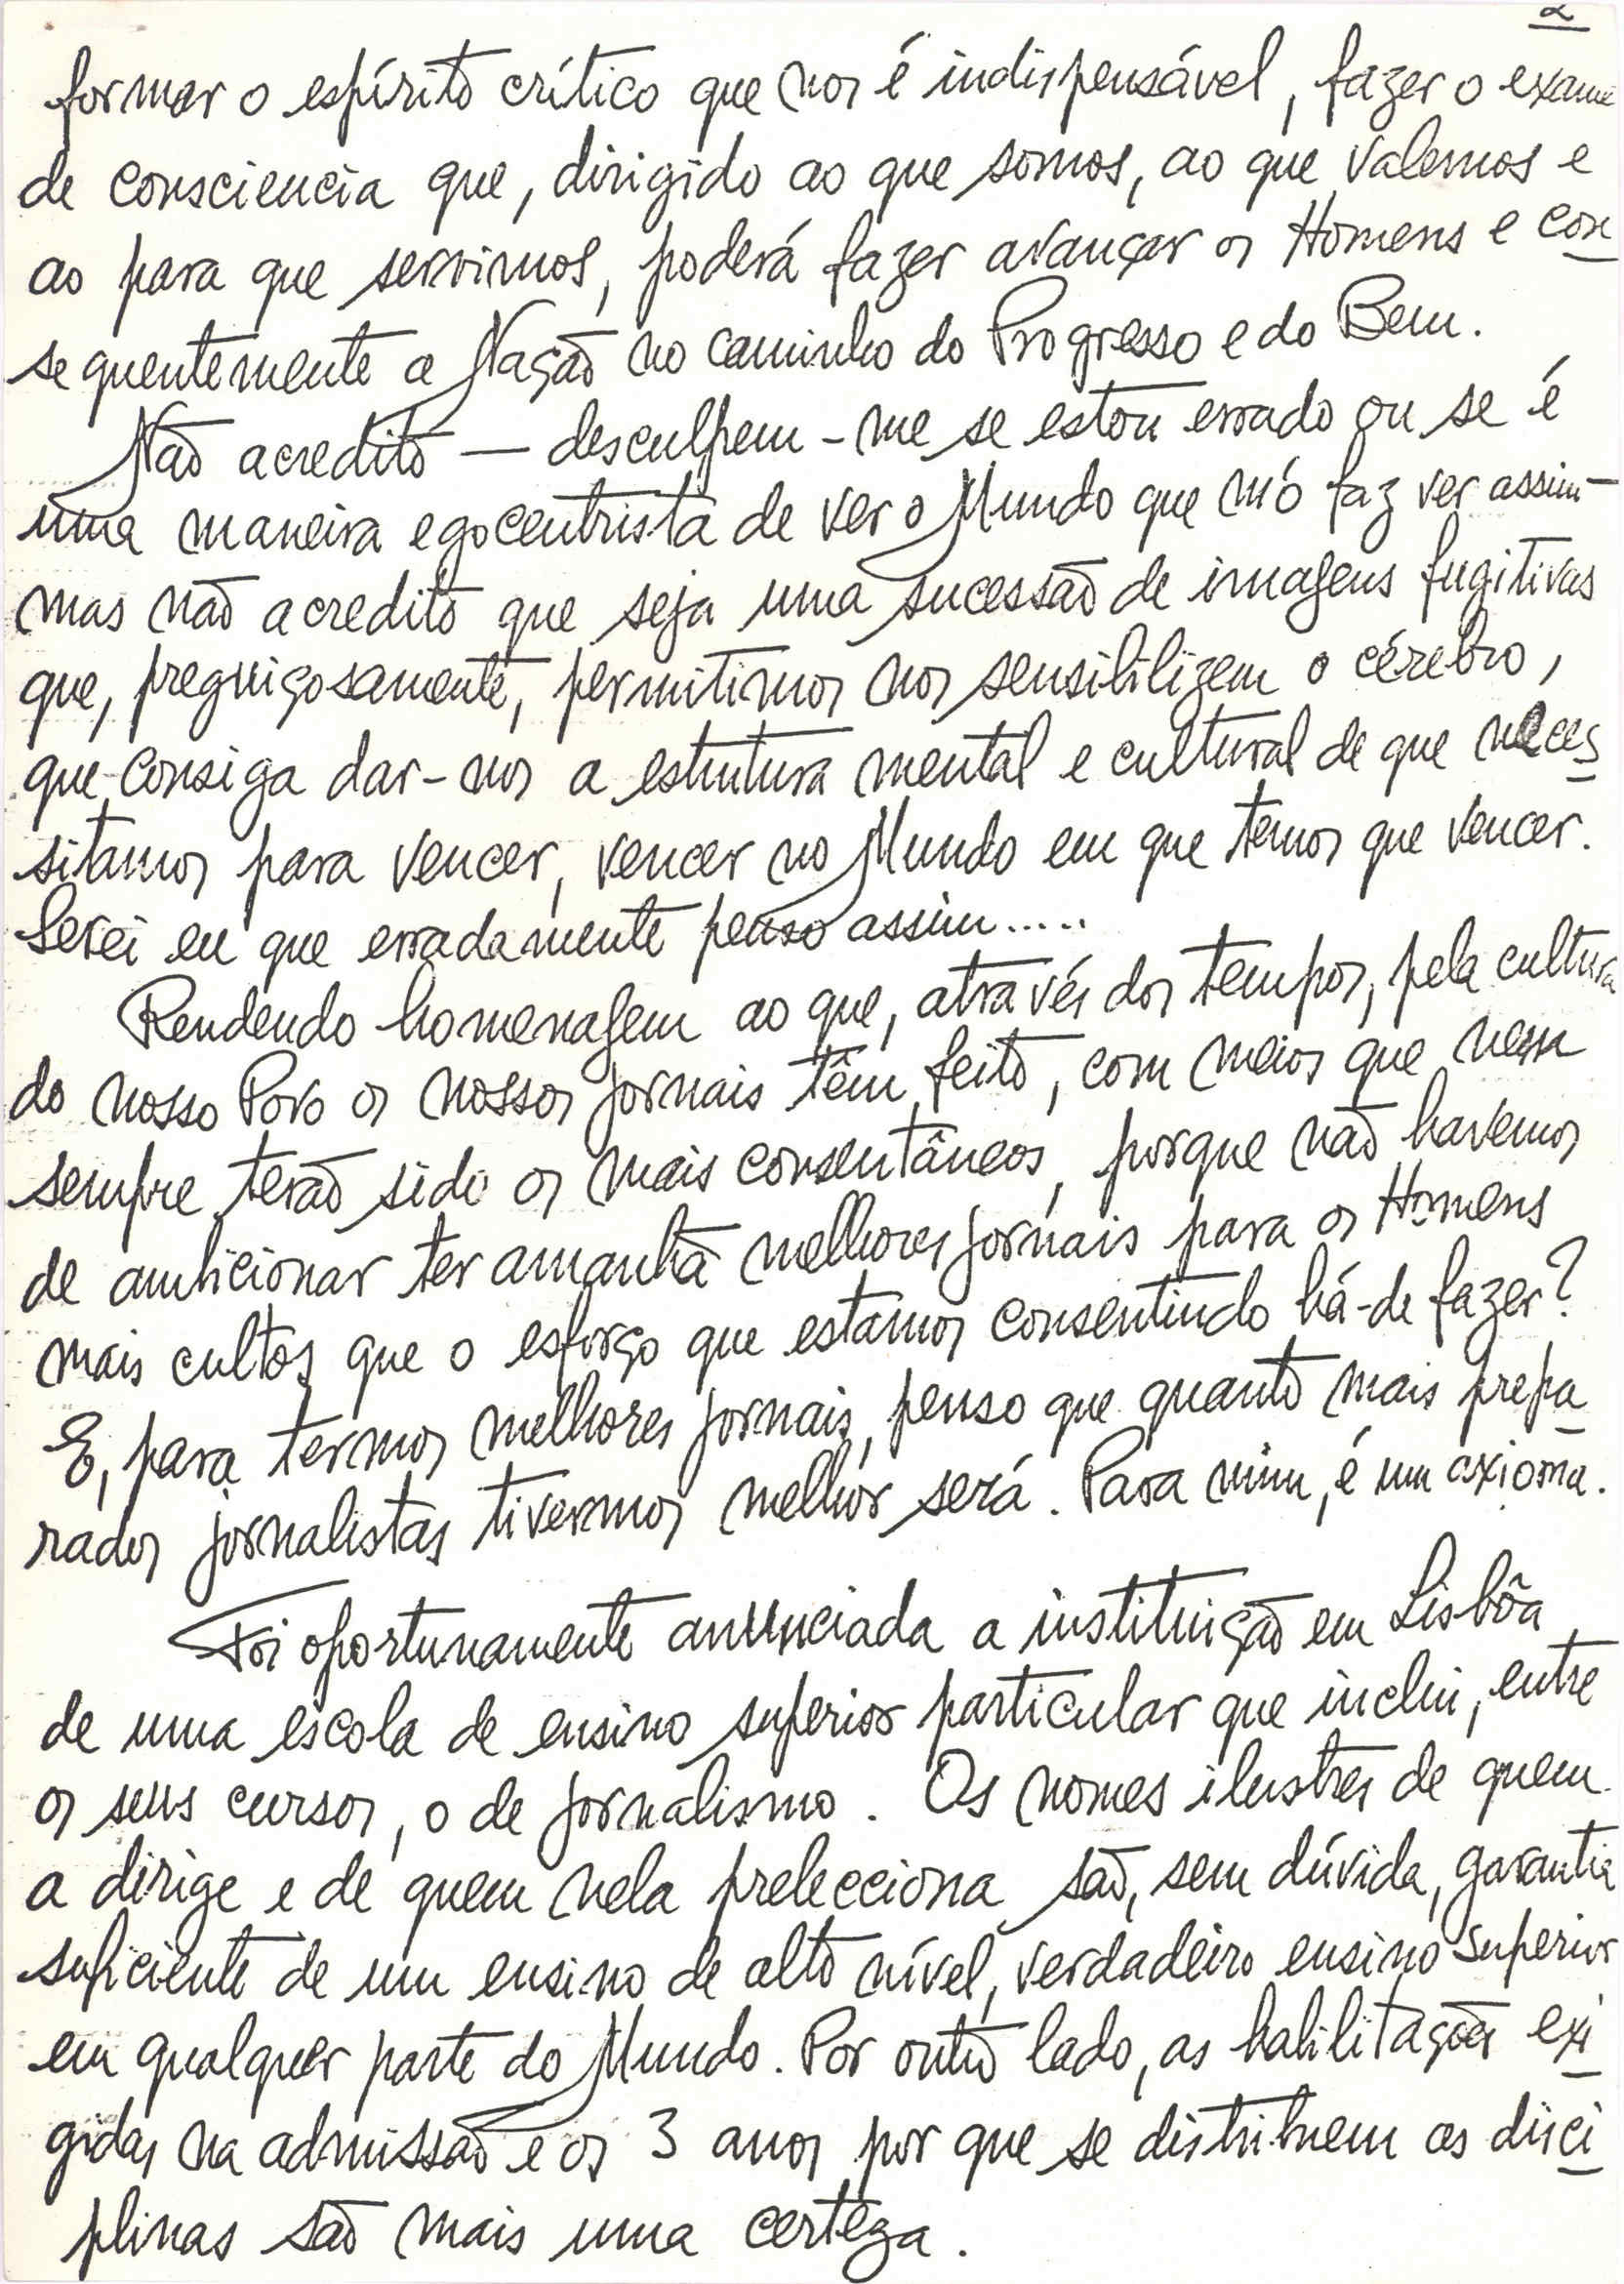 2
formar o espírito crítico que nos é indispensável, fazer o exame
de consciencia que, dirigido ao que somos, ao que valemos e
ao para que servimos, poderá fazer avançar os Homens e con
sequentemente a Nação no caminho do Progresso e do Bem.
Não acredito — desculpem-me se estou errado ou se é
uma maneira egocentrista de ver o Mundo que mó faz ver assim —
mas não acredito que seja uma sucessão de imagens fugitivas
que, preguiçosamente, permitimos nos sensibilizem o cérebro,
que consiga dar-nos a estrutura mental e cultural de que neces
sitamos para vencer, vencer no Mundo em que temos que vencer.
Serei eu que erradamente penso assim.....
Rendendo homenagem ao que, através dos tempos, pela cultura
do nosso Povo os nossos jornais têm feito, com meios que nem
sempre terão sido os mais consentâneos, porque não havemos
de ambicionar ter amanhã melhores jornais para os Homens
mais cultos que o esforço que estamos consentindo há-de fazer?
E, para termos melhores jornais, penso que quanto mais prepa
rados jornalistas tivermos melhor será. Para mim, é um axioma.
Foi oportunamente anunciada a instituição em Lisbôa
de uma escola de ensino superior particular que inclui, entre
os seus cursos, o de jornalismo. Os nomes ilustres de quem
a dirige e de quem nela prelecciona são, sem dúvida, garantia
suficiente de um ensino de alto nível, verdadeiro ensino superior
em qualquer parte do Mundo. Por outro lado, as habilitações exi
gidas na admissão e os 3 anos por que se distribuem as disci
plinas são mais uma certeza.